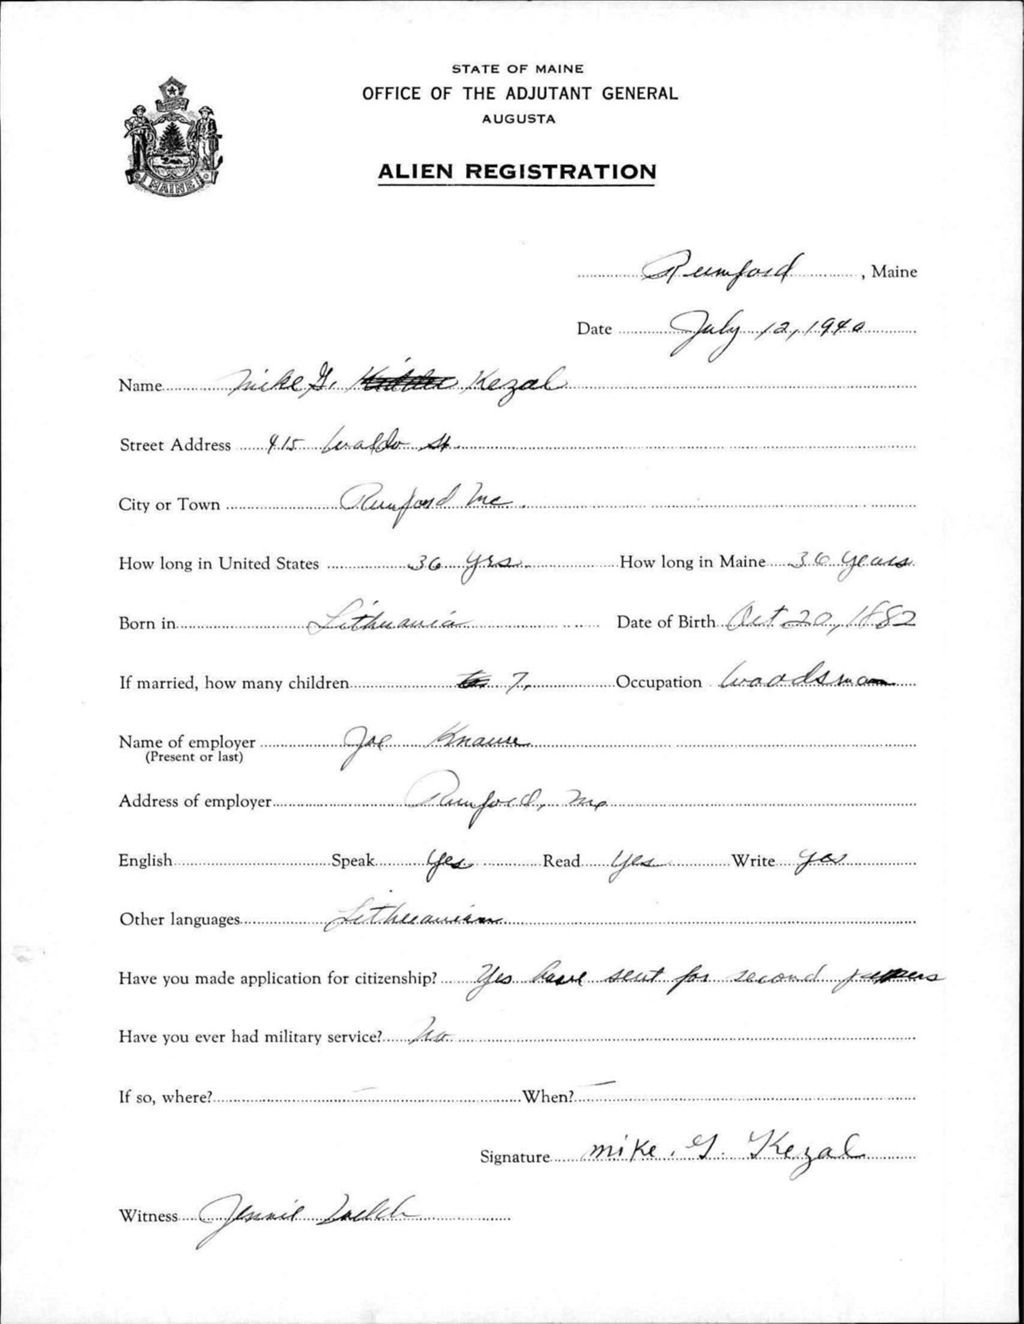 STATE OF MAINE
OFFICE OF THE ADJUTANT GENERAL
AUGUSTA
ALIEN REGISTRATION
MAINE
Rumford, Maine
Date July 12, 1940
Name Mike G. Kezal
Street Address 415 Waldo St.
City or Town Rumford Me.
How long in United States 36 yrs. How long in Maine 36 years
Born in Lithuania Date of Birth Oct 20, 1882
If married, how many children 7. Occupation Woodsman
Name of employer Joe
(Present or last)
Address of employer Rumford, Me
English Speak Yes Read Yes Write Yes
Other languages Lithuanian
Have you made application for citizenship? Yes have sent for second papers
Have you ever had military service? No
If so, where? - When? -
Signature mike. G. Kezal
Witness Jennie Welch